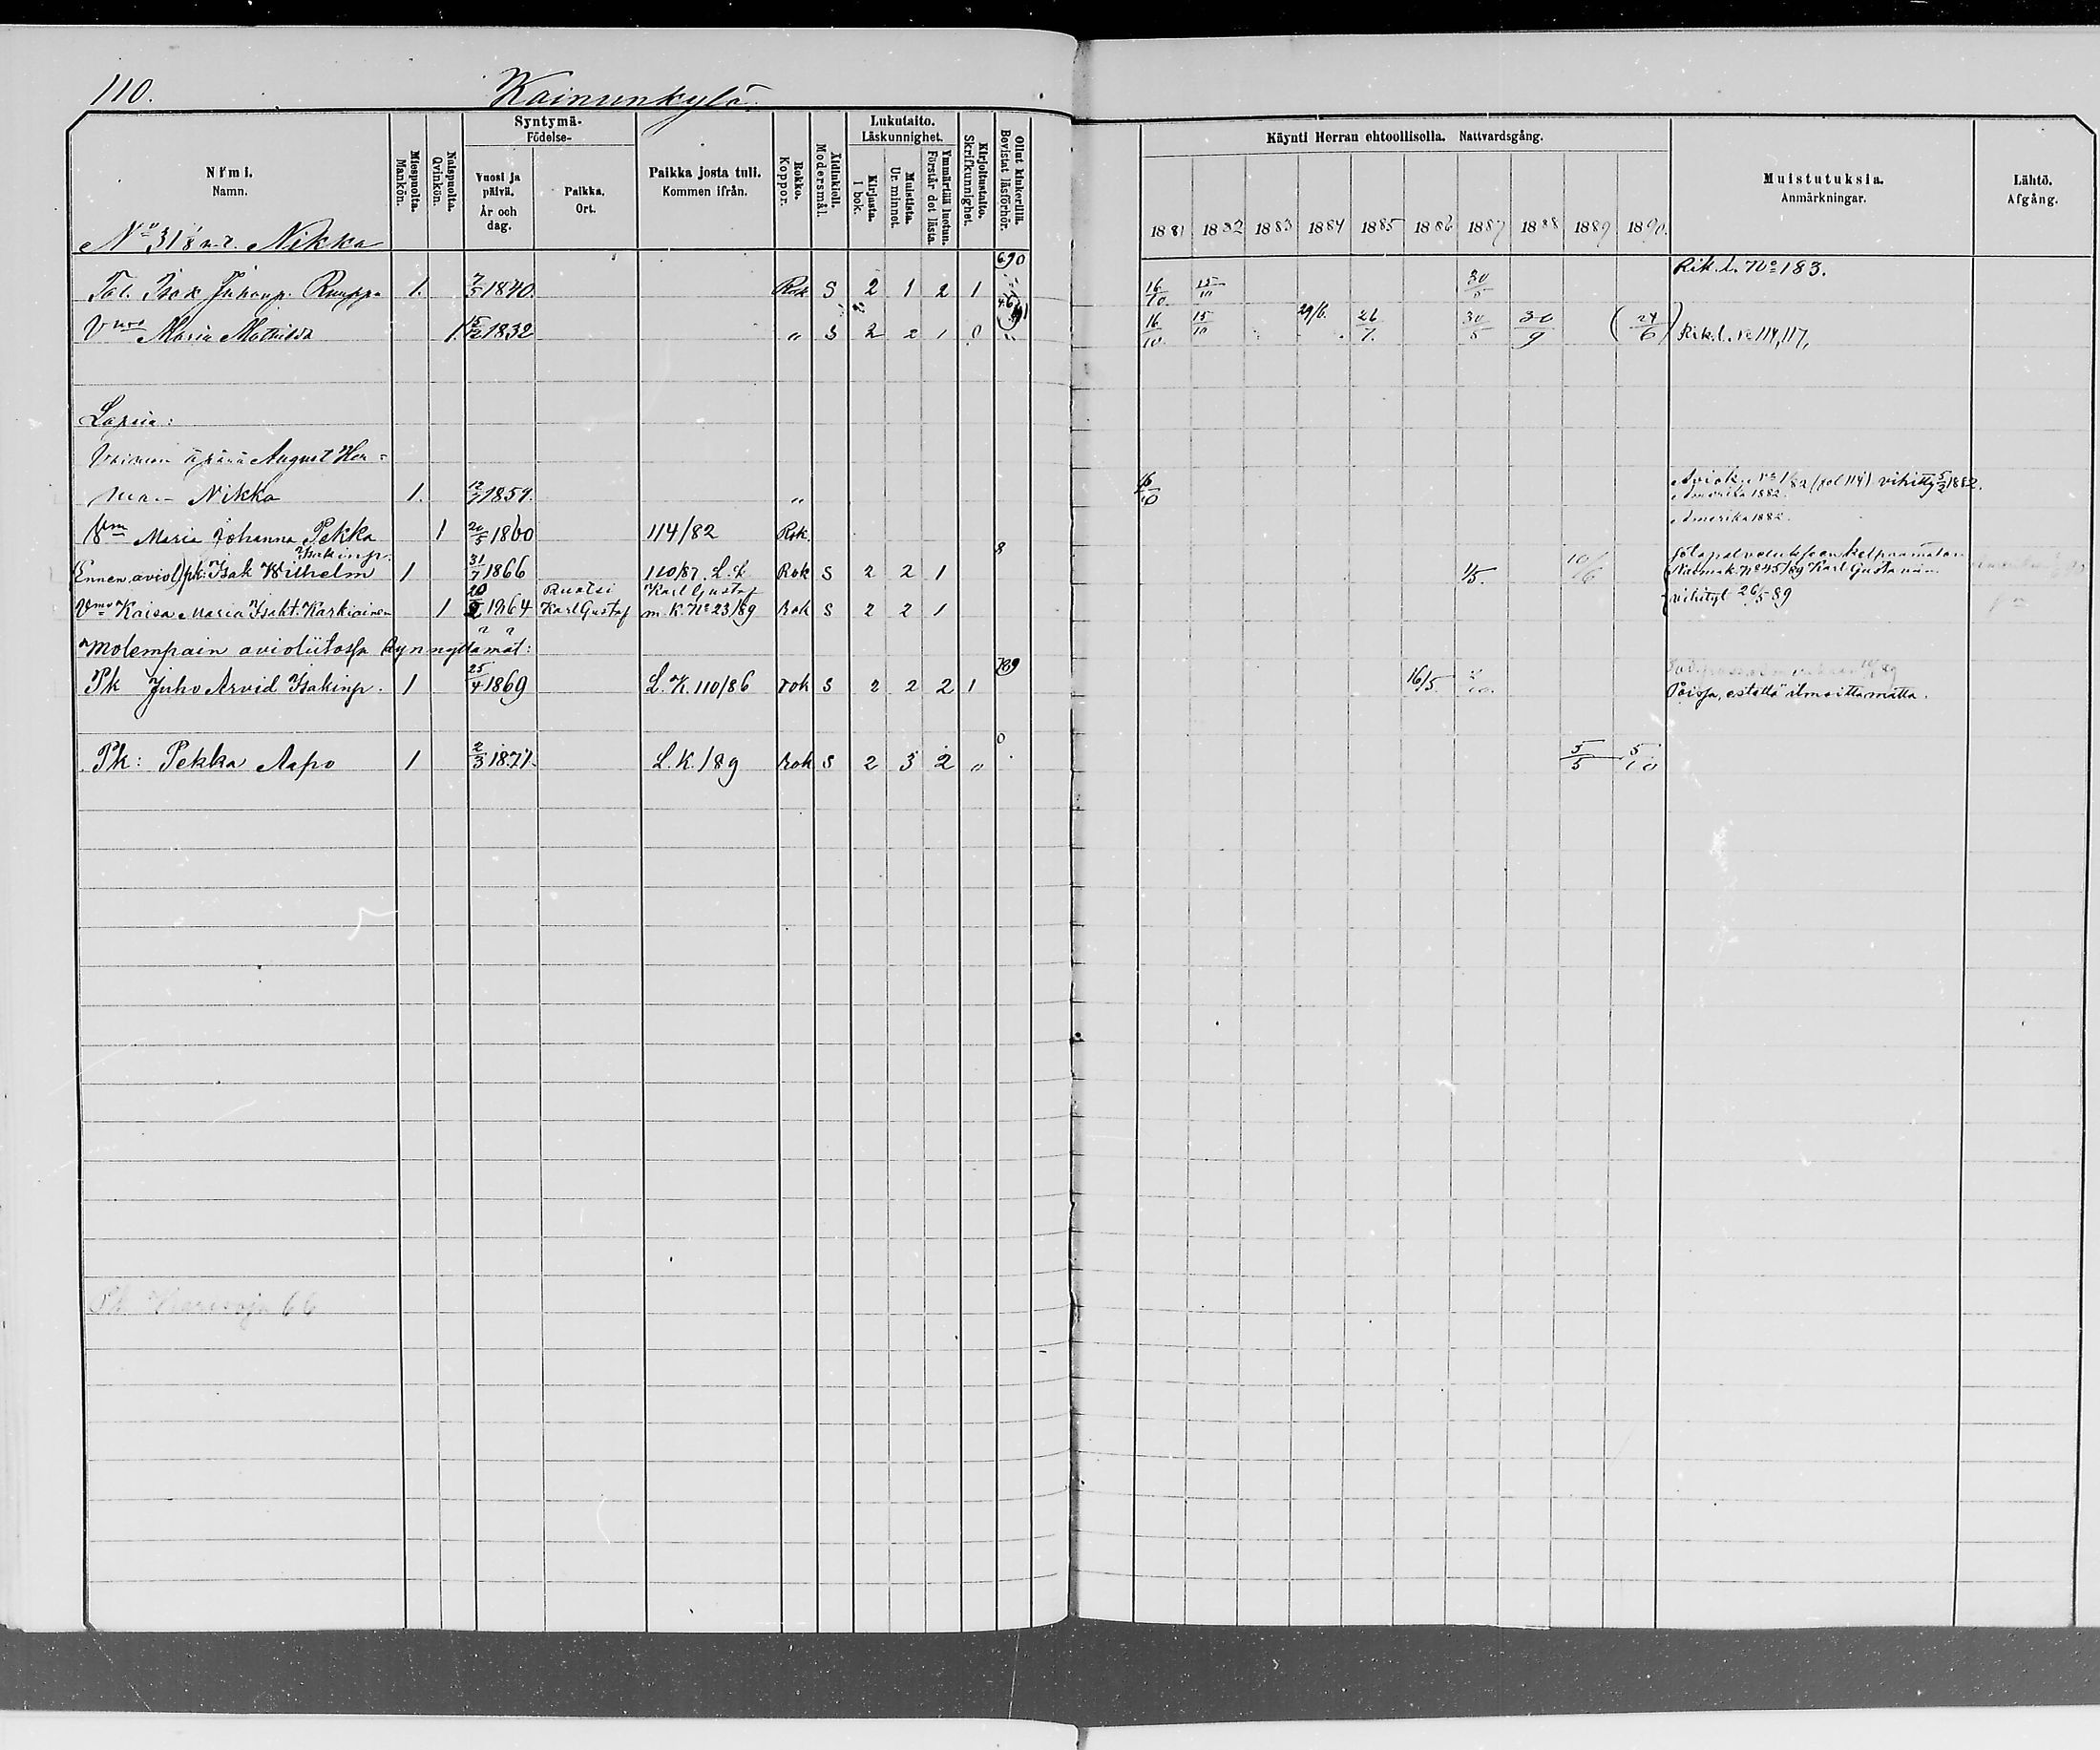 110. Kainunkylä.
Nimi. Namn.
Miespuolta. Mankön.
Naispuolta. Qvinkön.
Syntymä- Födelse-
Vuosi ja päivä. År och dag.
Paikka. Ort.
Paikka josta tuli. Kommen ifrån.
Rokko. Koppor.
Äidinkieli. Modersmål.
Lukutaito. Läskunnighet.
Kirjasta. I bok.
Muistista. Ur minnet.
Ymmärtää luetun. Förstår det lästa.
Kirjoitustaito. Skrifkunnighet.
Ollut kinkerillä. Bevistat läsförhör.
Käynti Herran ehtoollisella. Nattvardsgång.
1881 1882 1883 1884 1885 1886 1887 1888 1889 1890.
Muistutuksia. Anmärkningar.
Lähtö. Afgång.
Nikka
690
Tal. Isak Juhonp. Ruuppa 1. 7/3 1840. Rok S 2 1 2 1 16/10 15/10 30/5 Rik. l. No 183.
Vmo Maria Mathilda 1. 15/2 1832 " S 2 2 1 0 16/10 15/10 29/6. 26/7. 30/5 30/9 (24/6) Rik. l. No 114, 117,
Lapsia:
Vaimon äpärä August Her=
man Nikka 1. 12/7 1859. " 16/10 vihitty 5/2 1882.
Amerika 1882.
Vm Maria Johanna Pekka 1 20/5 1860 114/82 Rok. Amerika 1882.
Isakinp.
(Ennen aviol) pk: Isak Wilhelm 1 31/7 1866 110/87. L. k Rok S 2 2 1 8 1/5. 10/6 No 45/89 Karl Gustaviin
Vmo Kaisa Maria Isakt. Karkiainen 1 20 1864 Ruotsi Karl Gustaf Karl Gustaf m. K. No 23/89 Rok S 2 2 1 vihityt 26/5 89
Molempain avioliitossa synnyttämät:
Pk Juho Arvid Isakinp. 1 25/4 1869 L. K. 110/86 rok S 2 2 2 1 789 16/5. Poissa, estettä ilmoittamatta.
Pk: Pekka Aapo 1 2/3 1871. L. K. /89 Rok S 2 3 2 " 0 5/5 5/10
66